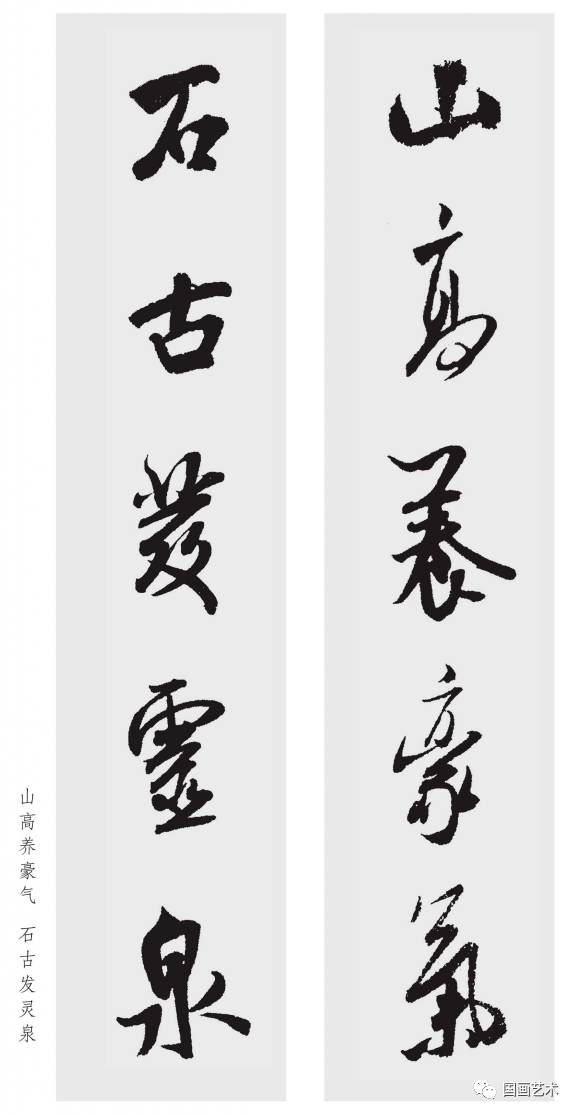 山高養豪氣
石古發靈泉
山高养豪气 石古发灵泉
国画艺术